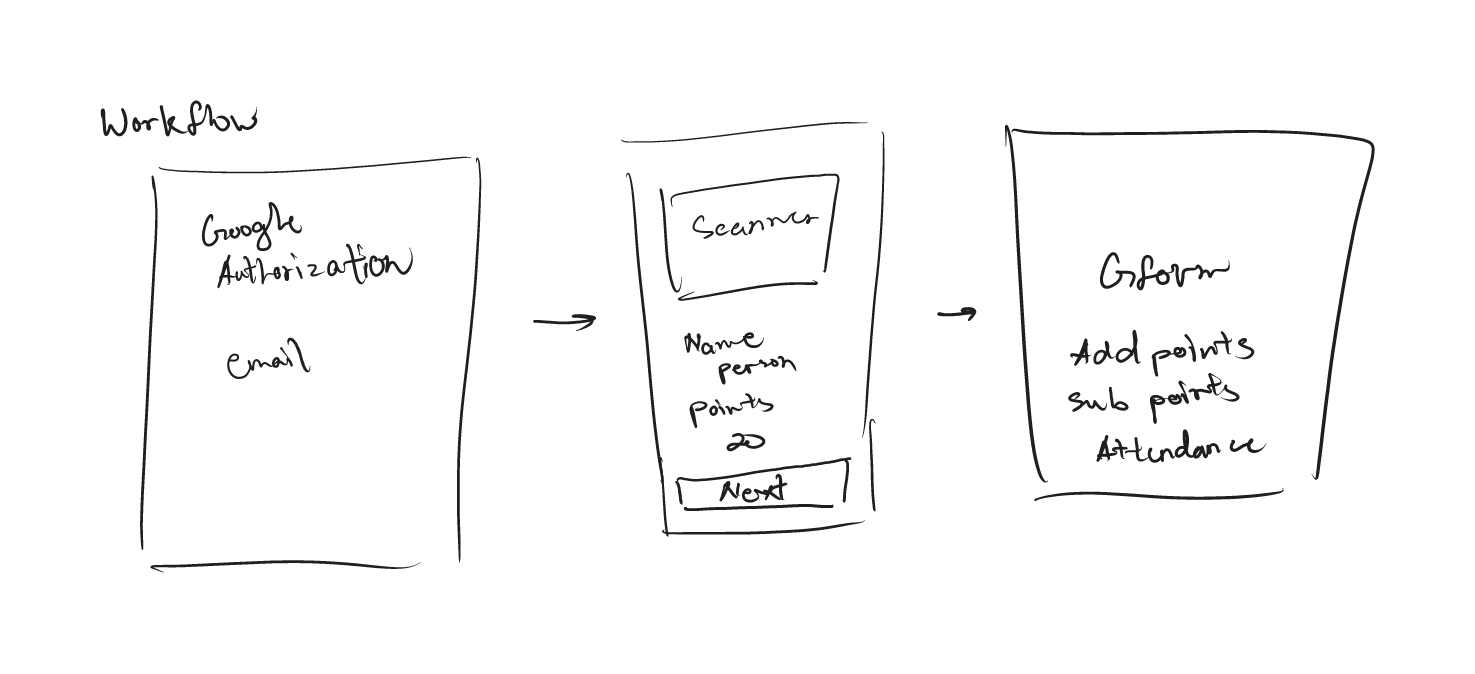 Workflow
Google
Authorization
email
Scanner
Name
person
points
20
Next
Gform
Add points
sub points
Attendance